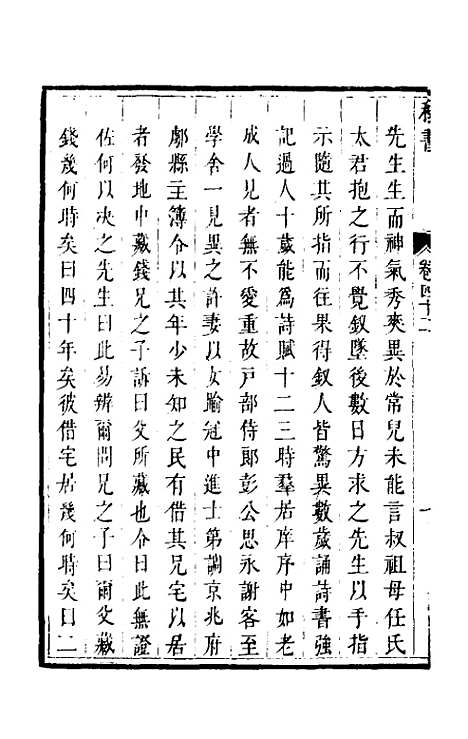 稗書
卷四十二
一
先生生而神氣秀爽異於常兒未能言叔祖母任氏
太君抱之行不覺釵墜後數日方求之先生以手指
示隨其所指而往果得釵人皆驚異數歲誦詩書強
記過人十歲能為詩賦十二三時羣居庠序中如老
成人見者無不愛重故戸部侍郎彭公思永謝客至
學舍一見異之許妻以女踰冠中進士第調京兆府
鄠縣主簿令以其年少未知之民有借其兄宅以居
者發地中藏錢兄之子訴曰父所藏也令曰此無證
佐何以决之先生曰此易辨爾問兄之子曰爾父藏
錢幾何時矣曰四十年矣彼借宅居幾何時矣曰二